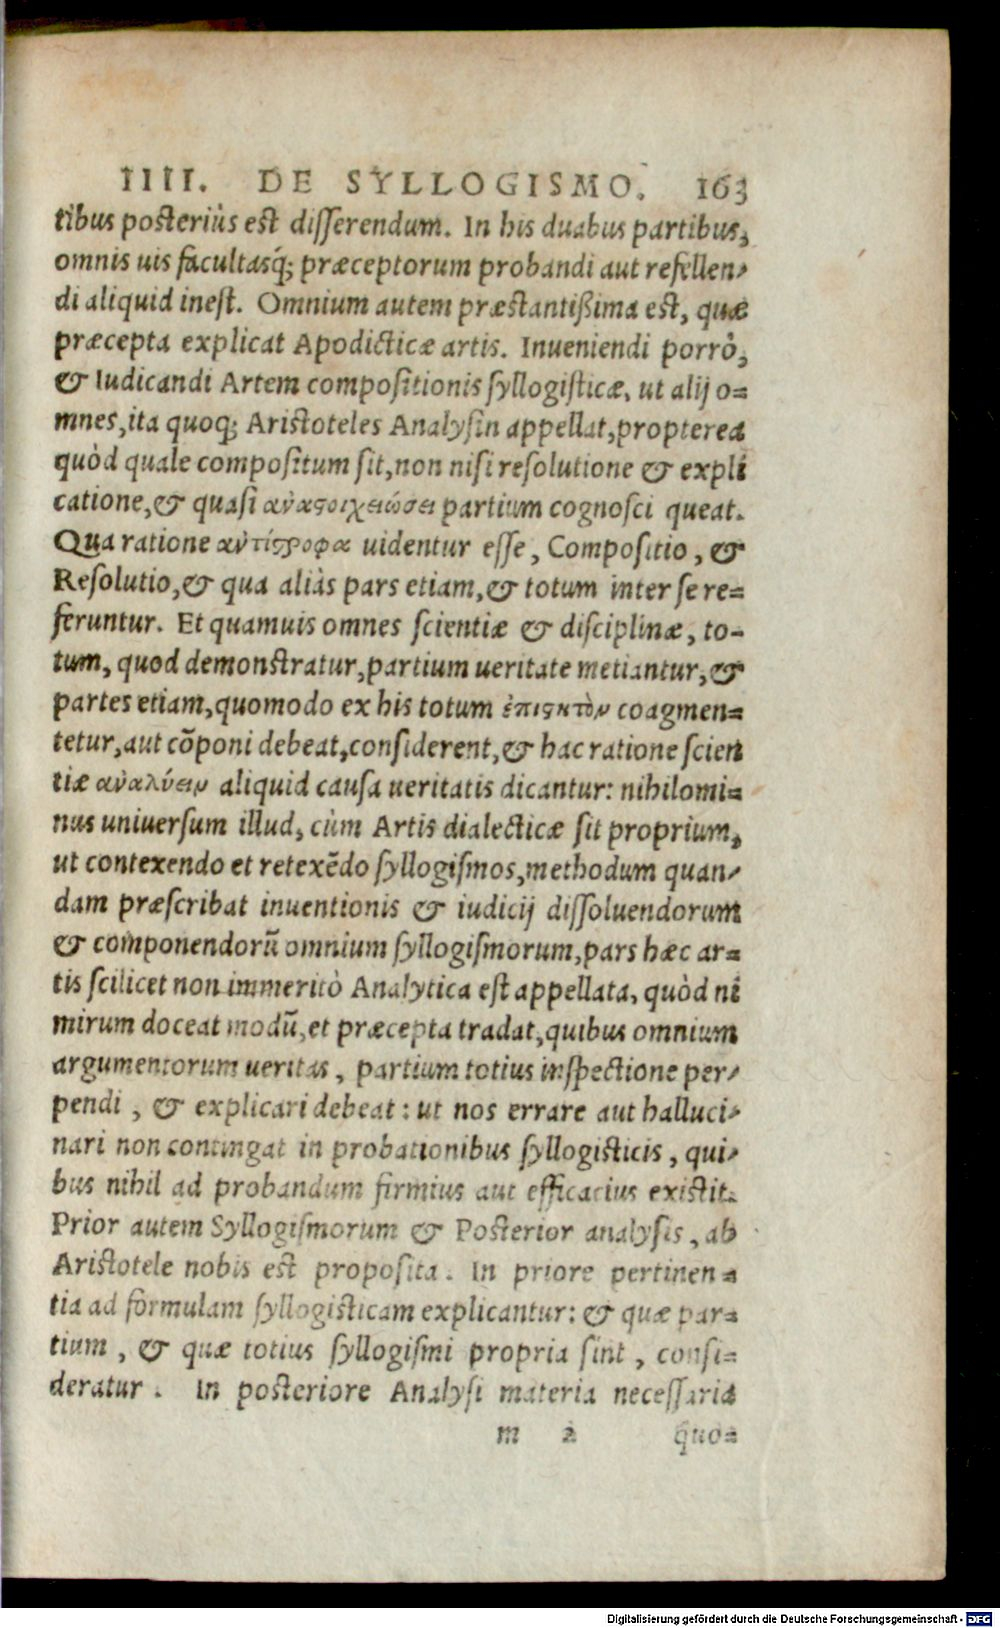 IIII. DE SYLLOGISMO. 163
tibus posteriùs est disserendum. In his duabus partibus,
omnis uis facultasq́; præceptorum probandi aut refellen-
di aliquid inest. Omnium autem præstantißima est, quæ
præcepta explicat Apodicticæ artis. Inueniendi porrò,
& Iudicandi Artem compositionis syllogisticæ, ut alij o=
mnes, ita quoq; Aristoteles Analysin appellat, propterea
quòd quale compositum sit, non nisi resolutione & expli
catione, & quasi ἀναστοιχειώσει partium cognosci queat.
Qua ratione ἀντίστροφα uidentur esse, Compositio, &
Resolutio, & qua aliàs pars etiam, & totum inter se re=
feruntur. Et quamuis omnes scientiæ & disciplinæ, to-
tum, quod demonstratur, partium ueritate metiantur, &
partes etiam, quomodo ex his totum ἐπιστητὸν coagmen=
tetur, aut cōponi debeat, considerent, & hac ratione scien
tiæ ἀναλύειν aliquid causa ueritatis dicantur: nihilomi=
nus uniuersum illud, cùm Artis dialecticæ sit proprium,
ut contexendo et retexēdo syllogismos, methodum quan-
dam præscribat inuentionis & iudicij dissoluendorum
& componendorū omnium syllogismorum, pars hæc ar=
tis scilicet non immeritò Analytica est appellata, quòd ni
mirum doceat modū, et præcepta tradat, quibus omnium
argumentorum ueritas, partium totius inspectione per-
pendi, & explicari debeat: ut nos errare aut halluci-
nari non contingat in probationibus syllogisticis, qui-
bus nihil ad probandum firmius aut efficacius existit.
Prior autem Syllogismorum & Posterior analysis, ab
Aristotele nobis est proposita. In priore pertinen=
tia ad formulam syllogisticam explicantur: & quæ par=
tium, & quæ totius syllogismi propria sint, consi=
deratur. In posteriore Analysi materia necessaria
m 2 quo=
Digitalisierung gefördert durch die Deutsche Forschungsgemeinschaft - DFG